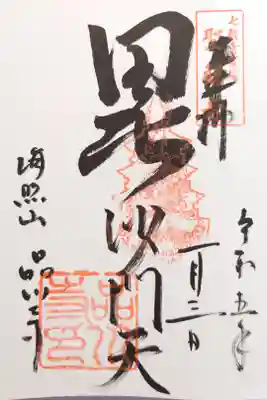 奉拝
令和五年
一月三日
毘沙門天
海照山 品川寺